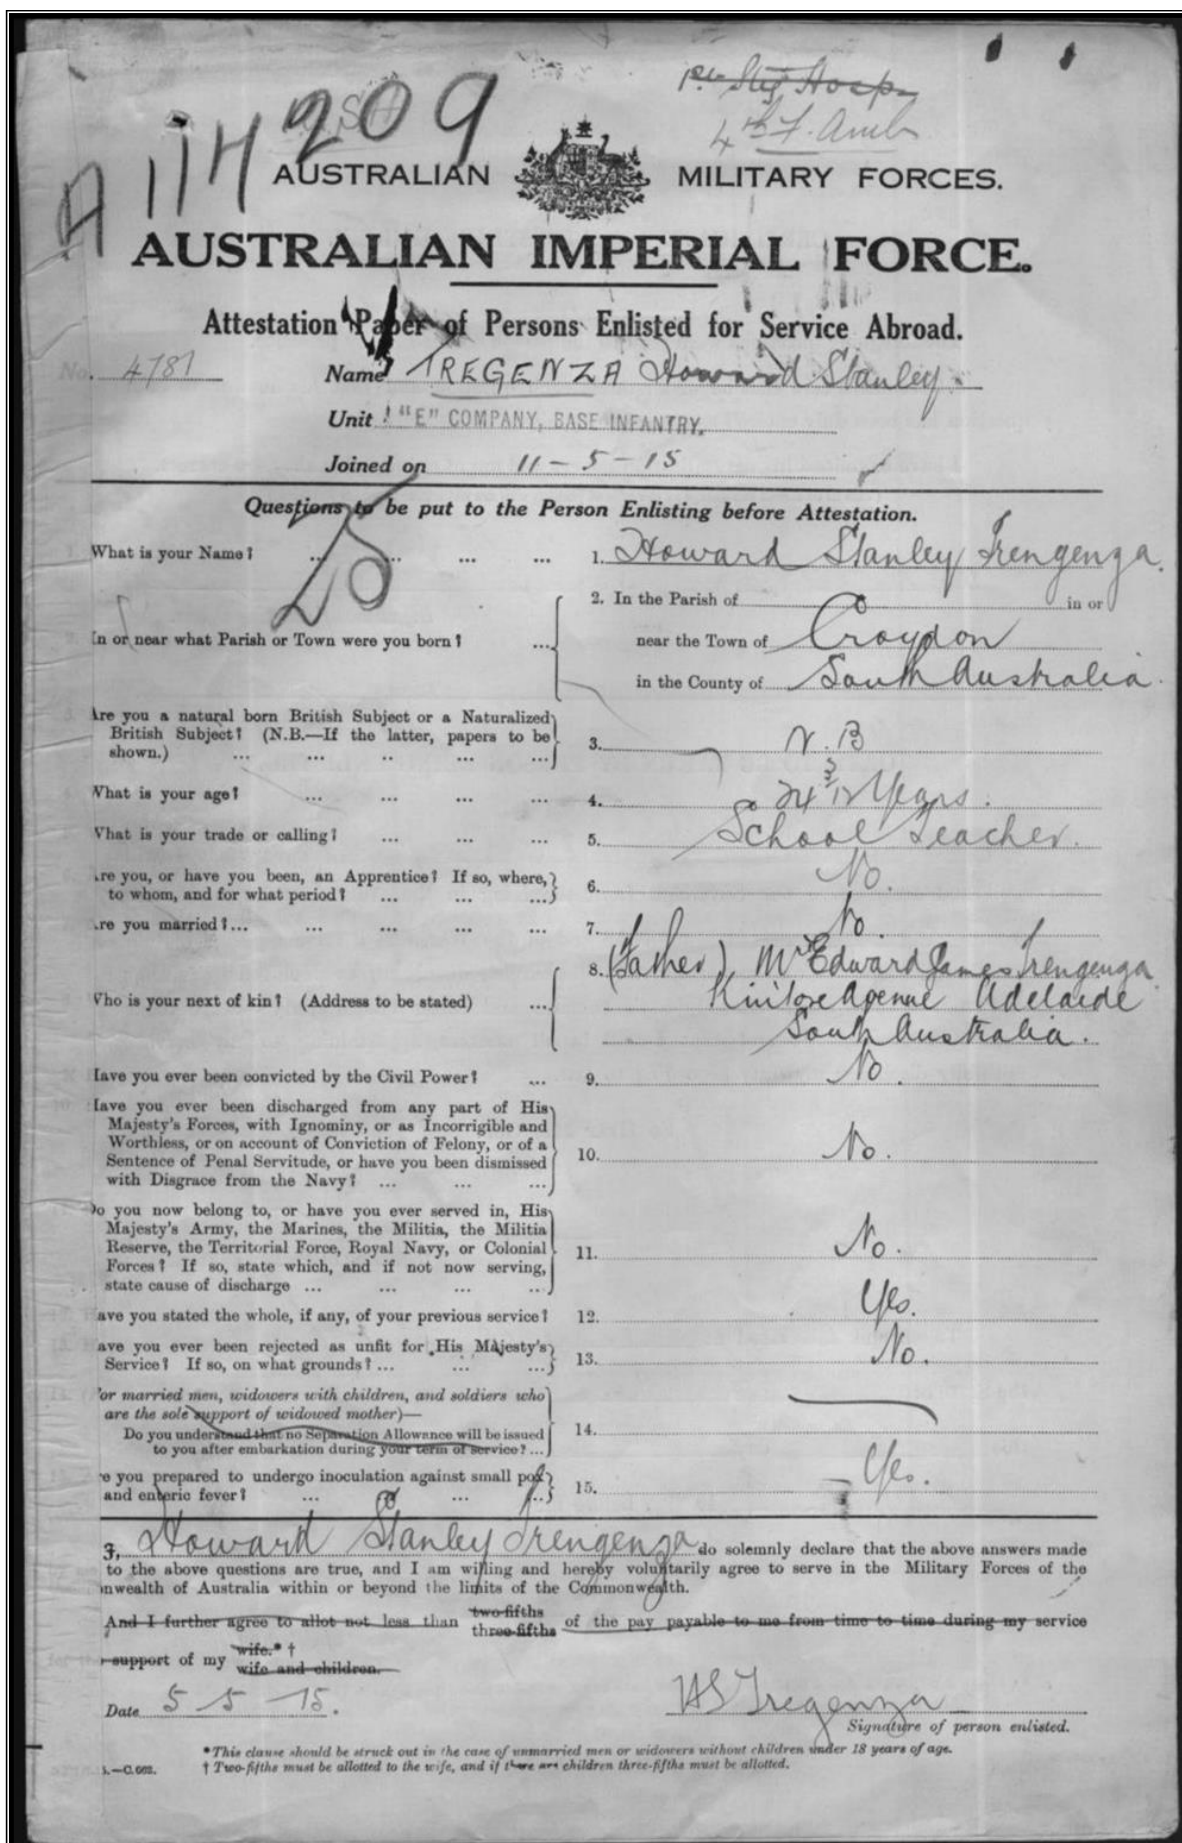 209
A 1174
1st Sty Hosp
4th F. Amb
AUSTRALIAN MILITARY FORCES.
AUSTRALIAN IMPERIAL FORCE.
Attestation Paper of Persons Enlisted for Service Abroad.
No. 4781 Name TREGENZA Howard Stanley.
Unit "E" COMPANY, BASE INFANTRY.
Joined on 11-5-15
Questions to be put to the Person Enlisting before Attestation.
25
What is your Name? ... ... ... ... 1. Howard Stanley Trengenza.
2. In the Parish of in or
In or near what Parish or Town were you born? ... near the Town of Croydon
in the County of South Australia.
Are you a natural born British Subject or a Naturalized
British Subject? (N.B.—If the latter, papers to be 3. N.B
shown.) ... ... .. ... ...
What is your age? ... ... ... ... 4. 24 3/12 Years.
What is your trade or calling? ... ... ... 5. School Teacher.
are you, or have you been, an Apprentice? If so, where, 6. No.
to whom, and for what period? ... ... ...
are you married?... ... ... ... ... 7. No.
8. (Father) Mr Edward James Trengenza
Who is your next of kin? (Address to be stated) ... Kintore Avenue Adelaide
South Australia.
Have you ever been convicted by the Civil Power? ... 9. No.
Have you ever been discharged from any part of His
Majesty's Forces, with Ignominy, or as Incorrigible and
Worthless, or on account of Conviction of Felony, or of a 10. No.
Sentence of Penal Servitude, or have you been dismissed
with Disgrace from the Navy? ... ... ...
Do you now belong to, or have you ever served in, His
Majesty's Army, the Marines, the Militia, the Militia
Reserve, the Territorial Force, Royal Navy, or Colonial 11. No.
Forces? If so, state which, and if not now serving,
state cause of discharge ... ... ... ..
ave you stated the whole, if any, of your previous service? 12. Yes.
ave you ever been rejected as unfit for His Majesty's 13. No.
Service? If so, on what grounds? ... ... ...
or married men, widowers with children, and soldiers who
are the sole support of widowed mother)—
Do you understand that no Separation Allowance will be issued 14.
to you after embarkation during your term of service? ...
e you prepared to undergo inoculation against small pox 15. Yes.
and enteric fever? ... ... ... ...
I, Howard Stanley Trengenza do solemnly declare that the above answers made
to the above questions are true, and I am willing and hereby voluntarily agree to serve in the Military Forces of the
nwealth of Australia within or beyond the limits of the Commonwealth.
And I further agree to allot not less than two-fifths three-fifths of the pay payable to me from time to time during my service
support of my wife.* † wife and children.
Date 5 5 15. HS Tregenza
Signature of person enlisted.
*This clause should be struck out in the case of unmarried men or widowers without children under 18 years of age.
.—C.662. † Two-fifths must be allotted to the wife, and if there are children three-fifths must be allotted.